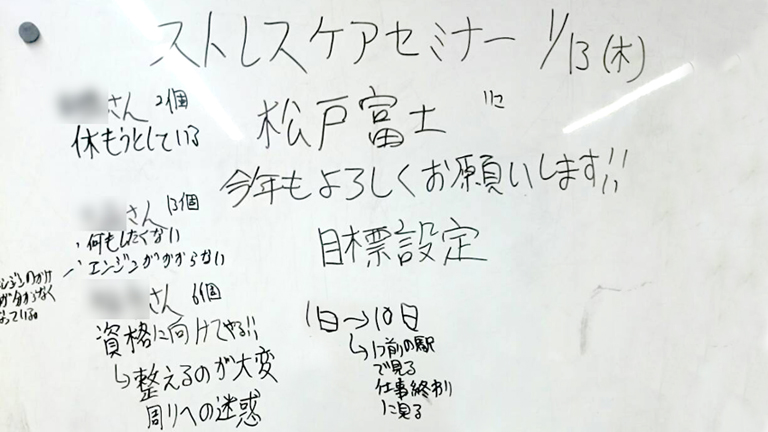 ストレスケアセミナー 1/13(木)
松戸富士
今年もよろしくお願いします!!
目標設定
さん 2個
休もうとしている
さん 13個
・何もしたくない
・エンジンがかからない
さん 6個
資格に向けてやる!!
↳整えるのが大変
周りへの迷惑
1日→10日
↳1つ前の駅
で見る
仕事終わり
に見る